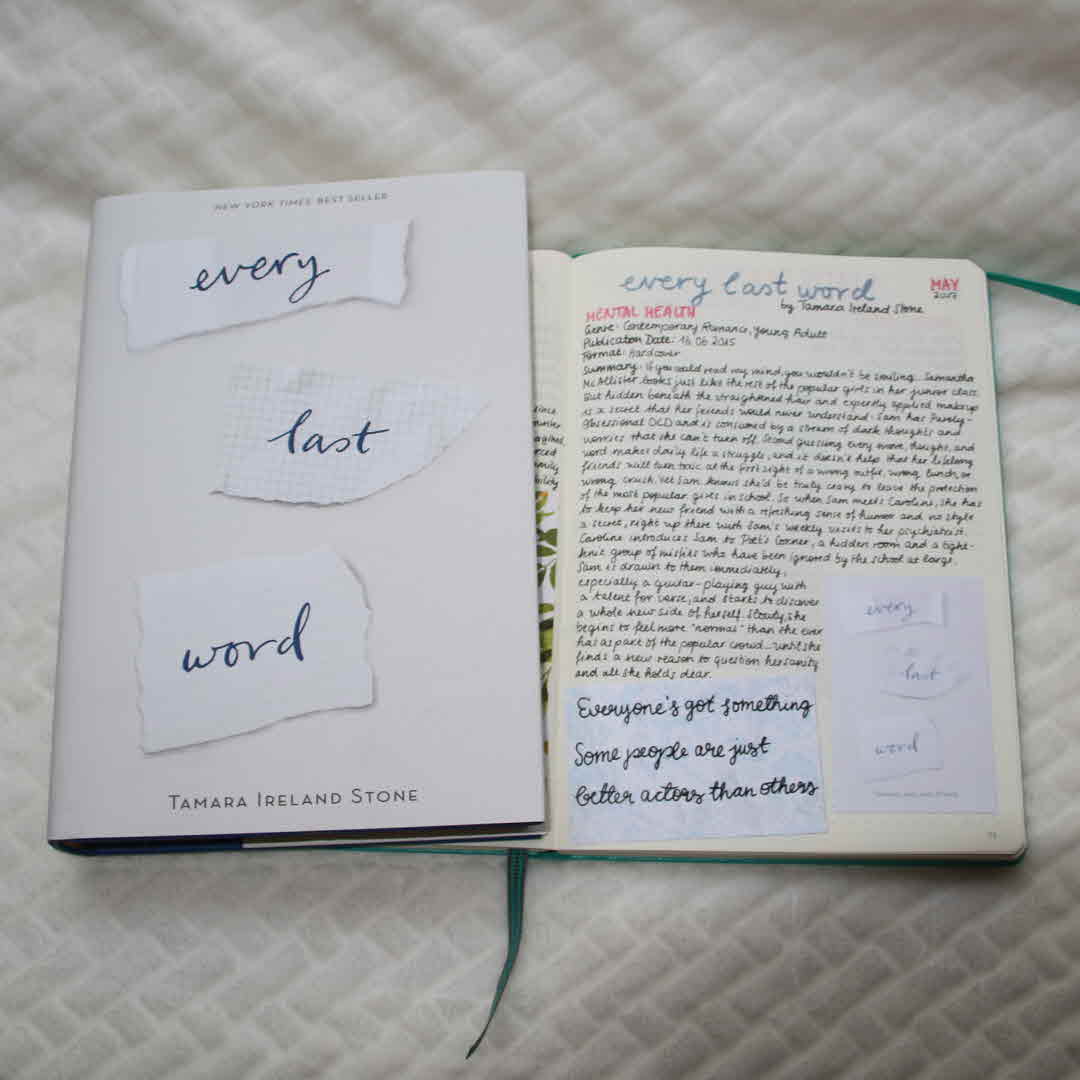 NEW YORK TIMES BEST SELLER
every
last
word
TAMARA IRELAND STONE
every last word
by Tamara Ireland Stone
MAY
2017
MENTAL HEALTH
Genre: Contemporary Romance, Young Adult
Publication Date: 16.06.2015
Format: Hardcover
Summary: If you could read my mind, you wouldn't be smiling. Samantha
McAllister looks just like the rest of the popular girls in her junior class.
But hidden beneath the straightened hair and expertly applied makeup
is a secret that her friends would never understand: Sam has Purely-
Obsessional OCD and is consumed by a stream of dark thoughts and
worries that she can't turn off. Second guessing every move, thought, and
word makes daily life a struggle, and it doesn't help that her lifelong
friends will turn toxic at the first sight of a wrong outfit, wrong lunch, or
wrong crush. Yet Sam knows she'd be truly crazy to leave the protection
of the most popular girls in school. So when Sam meets Caroline, she has
to keep her new friend with a refreshing sense of humor and no style
a secret, right up there with Sam's weekly visits to her psychiatrist.
Caroline introduces Sam to Poet's Corner, a hidden room and a tight-
knit group of misfits who have been ignored by the school at large.
Sam is drawn to them immediately,
especially a guitar-playing guy with
a talent for verse, and starts to discover
a whole new side of herself. Slowly, she
begins to feel more "normal" than she ever
has as part of the popular crowd... until she
finds a new reason to question her sanity
and all she holds dear.
Everyone's got something
Some people are just
better actors than others
every
last
word
TAMARA IRELAND STONE